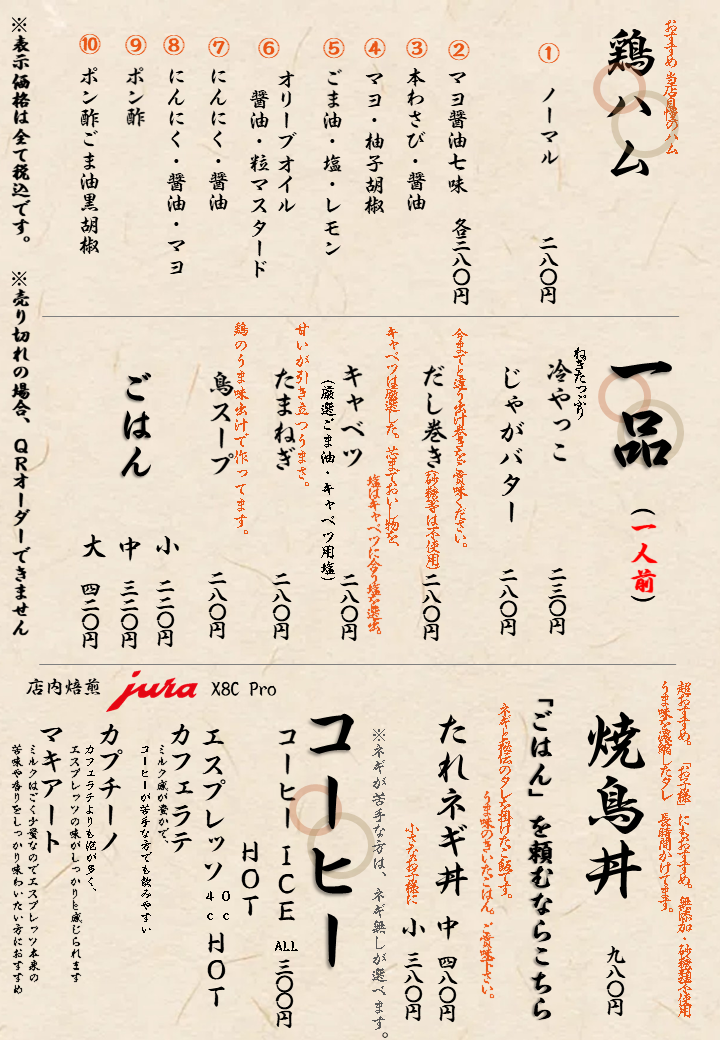 おすすめ 当店自慢のハム
鶏ハム
① ノーマル 二八〇円
② マヨ醤油七味 各三八〇円
③ 本わさび・醤油
④ マヨ・柚子胡椒
⑤ ごま油・塩・レモン
⑥ オリーブオイル
醤油・粒マスタード
⑦ にんにく・醤油
⑧ にんにく・醤油・マヨ
⑨ ポン酢
⑩ ポン酢ごま油黒胡椒
※表示価格は全て税込です。 ※売り切れの場合、QRオーダーできません
一品 (一人前)
ねぎたっぷり
冷やっこ 二三〇円
じゃがバター 二八〇円
今までと違う出汁巻きをご賞味ください。
だし巻き(砂糖等は不使用) 二八〇円
キャベツは厳選した、芯までおいしい物を、
塩はキャベツに合う塩を選出。
キャベツ 二八〇円
(厳選ごま油・キャベツ用塩)
甘いが引き立つうまさ。
たまねぎ 二八〇円
鶏のうま味出汁で作ってます。
鳥スープ 二八〇円
ごはん
小 二二〇円
中 三二〇円
大 四二〇円
超おすすめ。「お子様」にもおすすめ。無添加・砂糖類不使用
うま味を濃縮したタレ 長時間かけてます。
焼鳥丼 九八〇円
「ごはん」を頼むならこちら
ネギと秘伝のタレを掛けたご飯です。
うま味のきいたごはん。ご賞味下さい。
たれネギ丼 中 四八〇円
小さなお子様に
小 三八〇円
※ネギが苦手な方は、ネギ無しが選べます。
店内焙煎 jura X8C Pro
コーヒー
コーヒー ICE ALL 三〇〇円
HOT
エスプレッソ 40cc HOT
カフェラテ
ミルク感が豊かで、
コーヒーが苦手な方でも飲みやすい
カプチーノ
カフェラテよりも泡が多く、
エスプレッソの味がしっかりと感じられます
マキアート
ミルクはごく少量なのでエスプレッソ本来の
苦味や香りをしっかり味わいたい方におすすめ